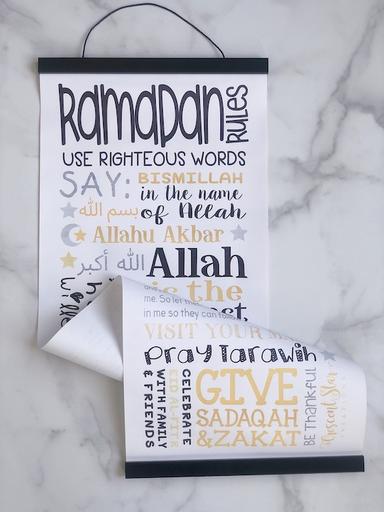 Ramadan
RULES
USE RIGHTEOUS WORDS
SAY:
BISMILLAH
in the name
of Allah
بسم الله
Allahu Akbar
الله أكبر
Allah
is the
me. So let
in me so they can
VISIT YOUR
pray Tarawih
CELEBRATE
EID AL-FITR
WITH FAMILY
& FRIENDS
GIVE
SADAQAH
& ZAKAT
BE Thankful